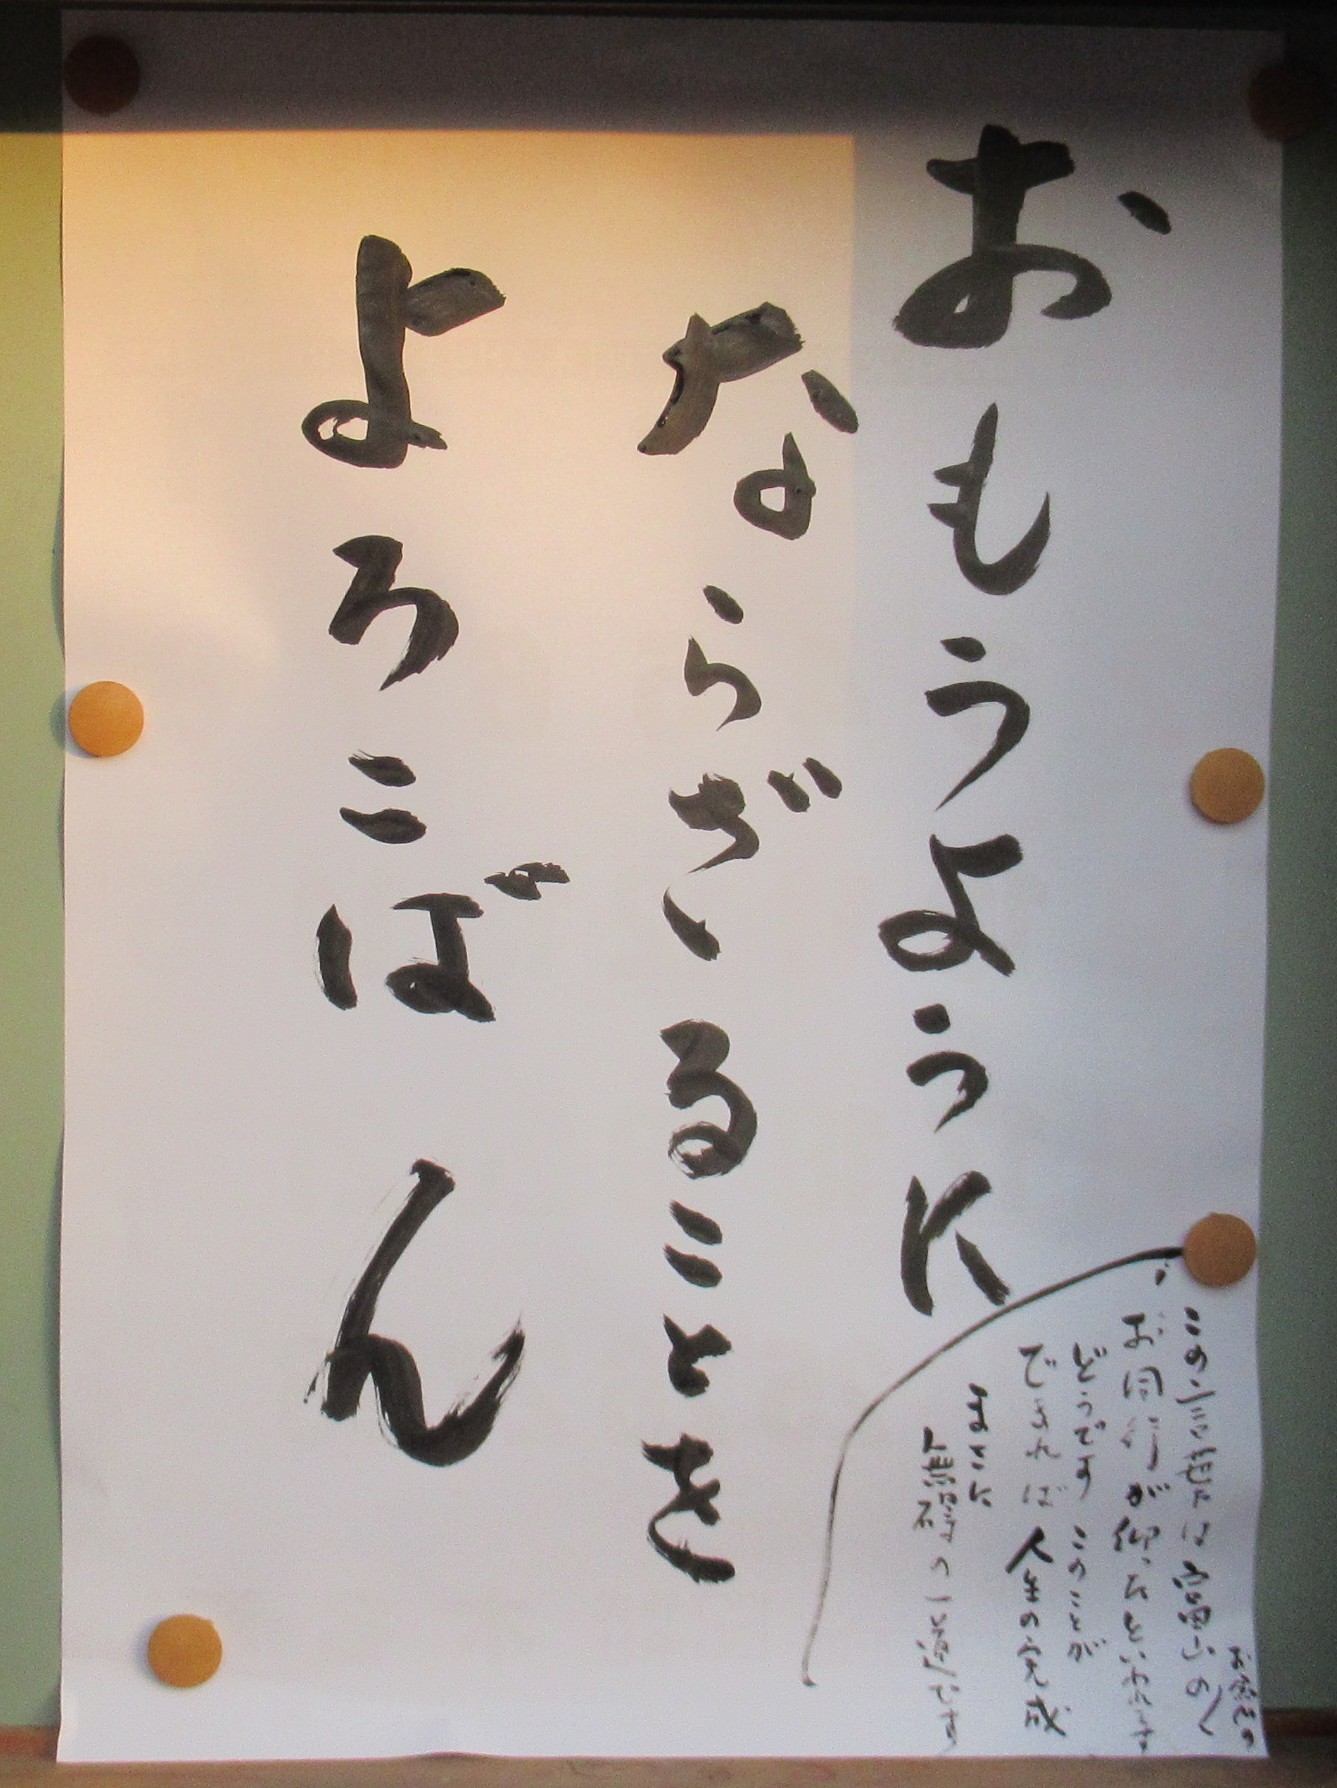 おもうように
ならざることを
よろこばん
この言葉は富山の
お念仏の
お同行が仰ったといわれます
どうです このことが
であれば 人生の完成
まさに